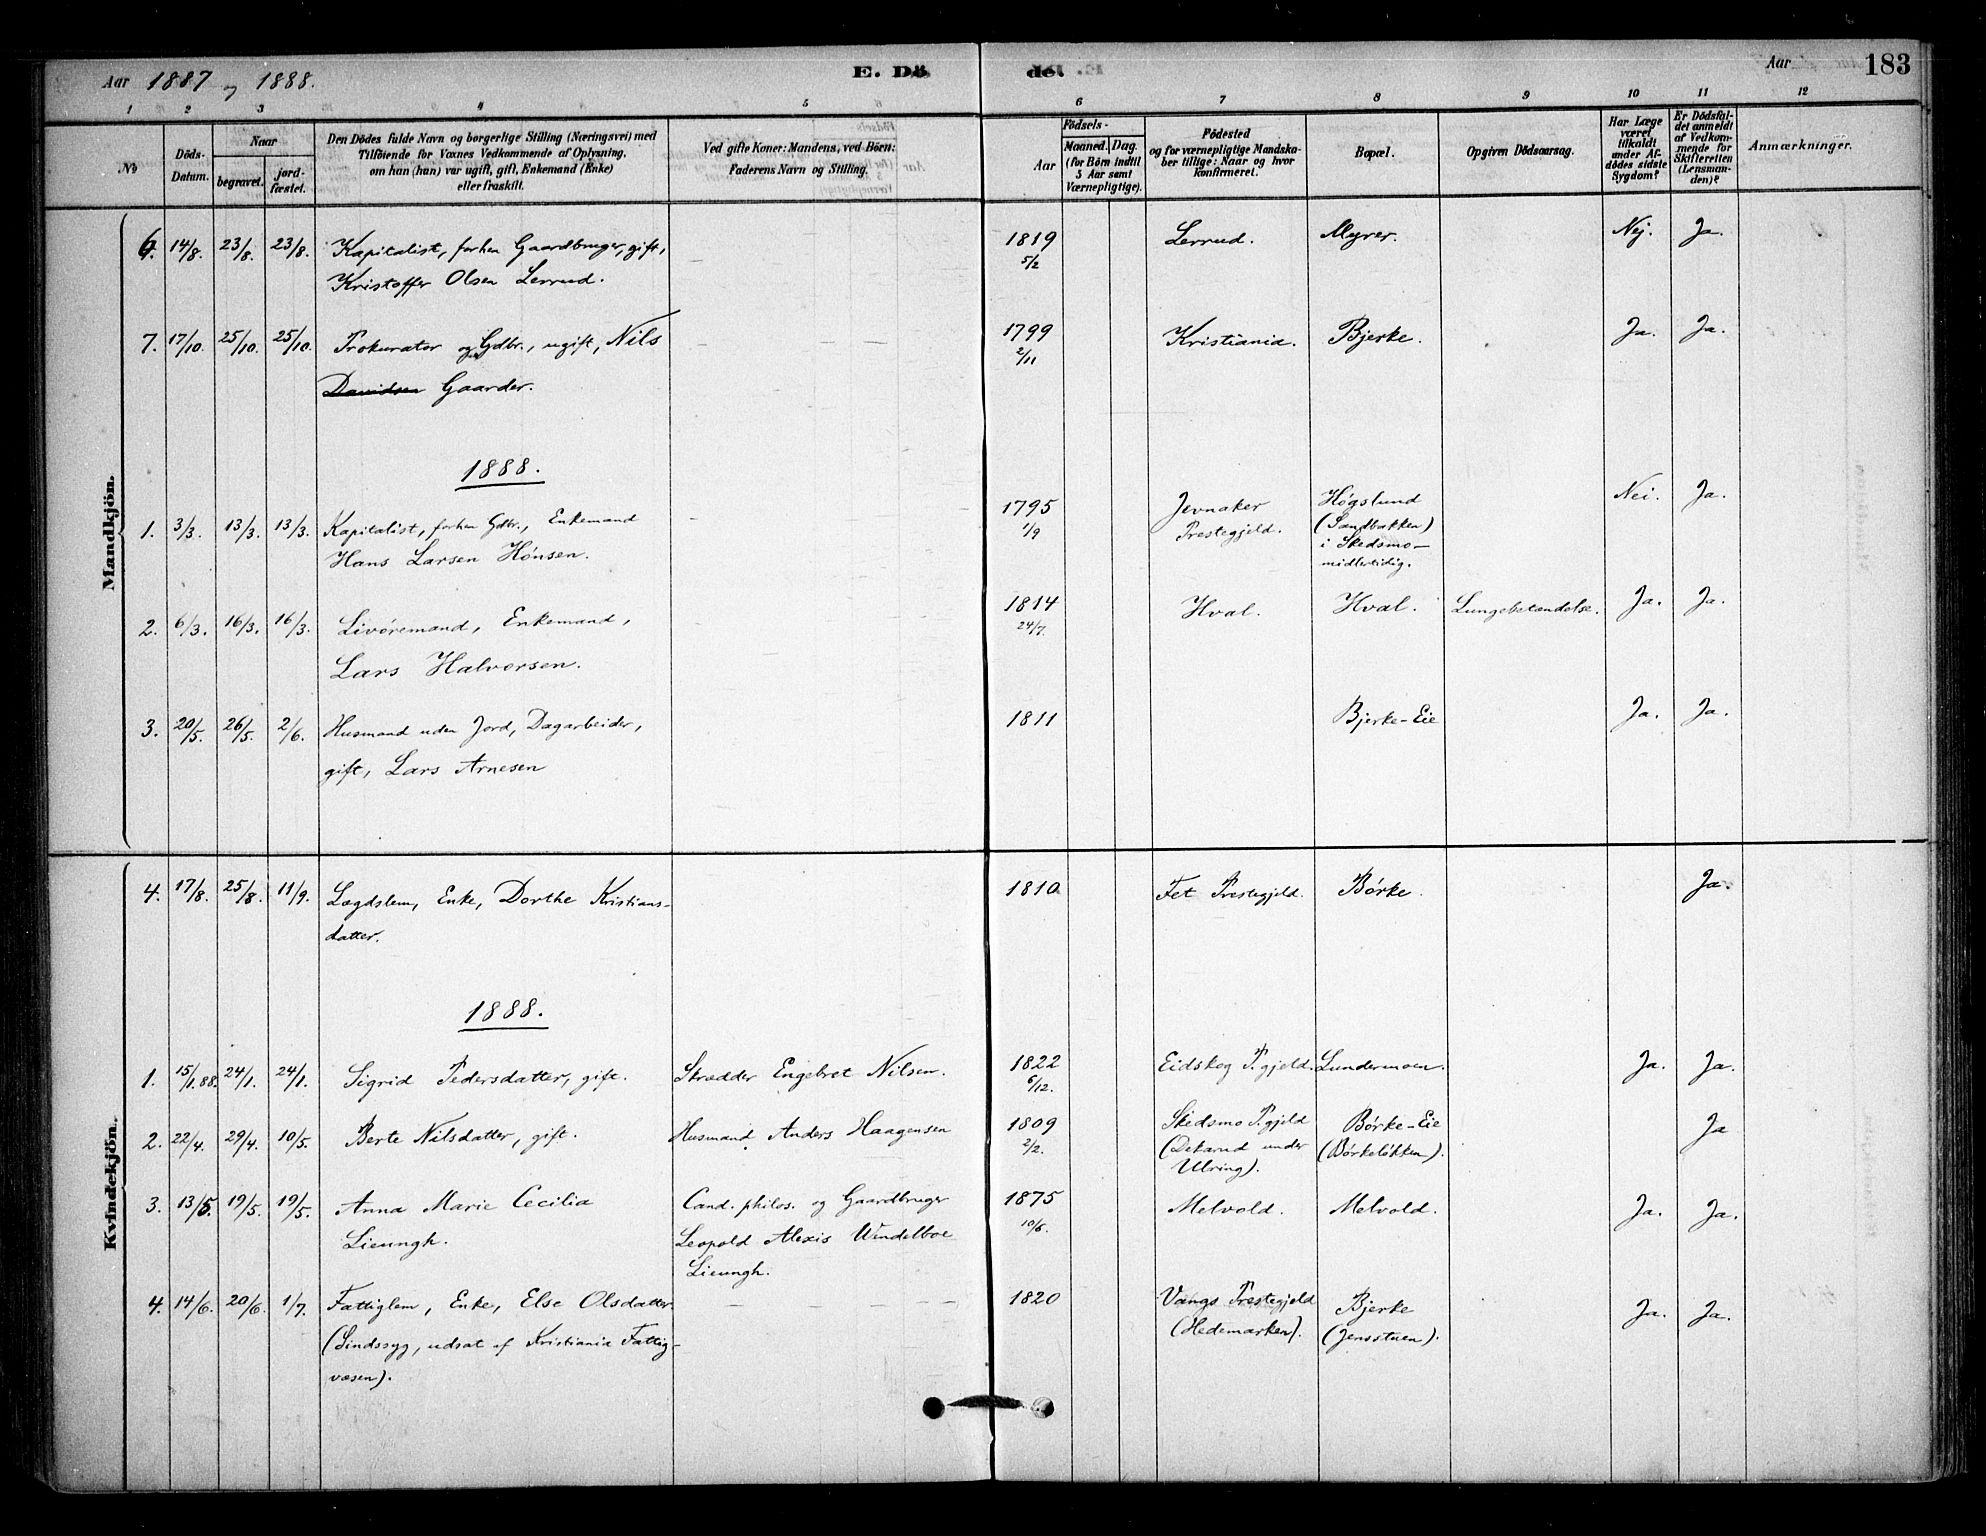 Aar 1887 og 1888.
E. Dö
de.
Aar
183
1 2 3 4 5 6 7 8 9 10 11 12
No
Döds-Datum.
Naar
begravet.
jord-fæstet.
Den Dödes fulde Navn og borgerlige Stilling (Næringsvei) med
Tilföiende for Voxnes Vedkommende af Oplysning,
om han (hun) var ugift, gift, Enkemand (Enke)
eller fraskilt.
Ved gifte Koner: Mandens, ved Börn:
Faderens Navn og Stilling.
Födsels-
Aar
Maaned. Dag.
(for Börn indtil
5 Aar samt
Værnepligtige).
Födested
og for værnepligtige Mandska-
ber tillige: Naar og hvor
Konfirmeret.
Bopæl.
Opgiven Dödsaarsag.
Har Læge
været
tilkaldt
under Af-
dödes sidste
Sygdom?
Er Dödsfal-
det anmeldt
af Vedkom-
mende for
Skifteretten
(Lensman-
den)?
Anmærkninger.
Mandkjön.
6. 14/8. 23/8. 23/8. Kapitalist, forhen Gaardbruger, gift, — 1819 Lerrud. Myrer. Nej. Ja.
Kristoffer Olsen Lerrud. 5/2
7. 17/10. 25/10. 25/10. Prokurator og Gdbr., ugift, Nils — 1799 Kristiania. Bjerke. Ja. Ja.
Davidsen Gaarder. 2/11
1888.
1. 3/3. 13/3. 13/3. Kapitalist, forhen Gdbr., Enkemand — 1795 Jevnaker Høgslund Nei. Ja.
Hans Larsen Hónsen. 1/9 Prestegjeld. (Sandbakken)
i Skedsmo—
midlertidig.
2. 6/3. 16/3. 16/3. Livöremand, Enkemand, 1814 Hval. Hval. Lungebetændelse. Ja. Ja.
Lars Halvorsen. 24/7.
3. 20/5. 26/5. 2/6. Husmand uden Jord, Dagarbeider, 1811 Bjerke-Eie Ja. Ja.
gift, Lars Arnesen
Kvindekjön.
4. 17/8. 25/8. 11/9. Lægdslem, Enke, Dorthe Kristians- 1810. Fet Prestegjeld. Börke. Ja.
datter.
1888.
1. 15/1.88. 24/1. 24/1. Sigrid Pedersdatter, gift. Skrædder Engebret Nilsen. 1822 Eidskog P.gjeld. Lundermoen. Ja. Ja.
6/12.
2. 22/4. 29/4. 10/5. Berte Nilsdatter, gift. Husmand Anders Haagensen 1809 Skedsmo P.gjeld Börke-Eie Ja
2/2. under (Börkelökken).
Ulring).
3. 13/5. 19/5. 19/5. Anna Marie Cecilia Cand. philos. og Gaardbruger 1875 Melvold. Melvold. Ja. Ja.
Lieungh. Leopold Alexis Windelboe
Lieungh.
4. 14/6. 20/6. 1/7. Fattiglem, Enke, Else Olsdatter — — — — 1820 Vangs Prestegjeld Bjerke Ja. Ja.
(Sindssyg, udsat af Kristiania Fattig- (Hedemarken). (Jensstuen).
væsen).